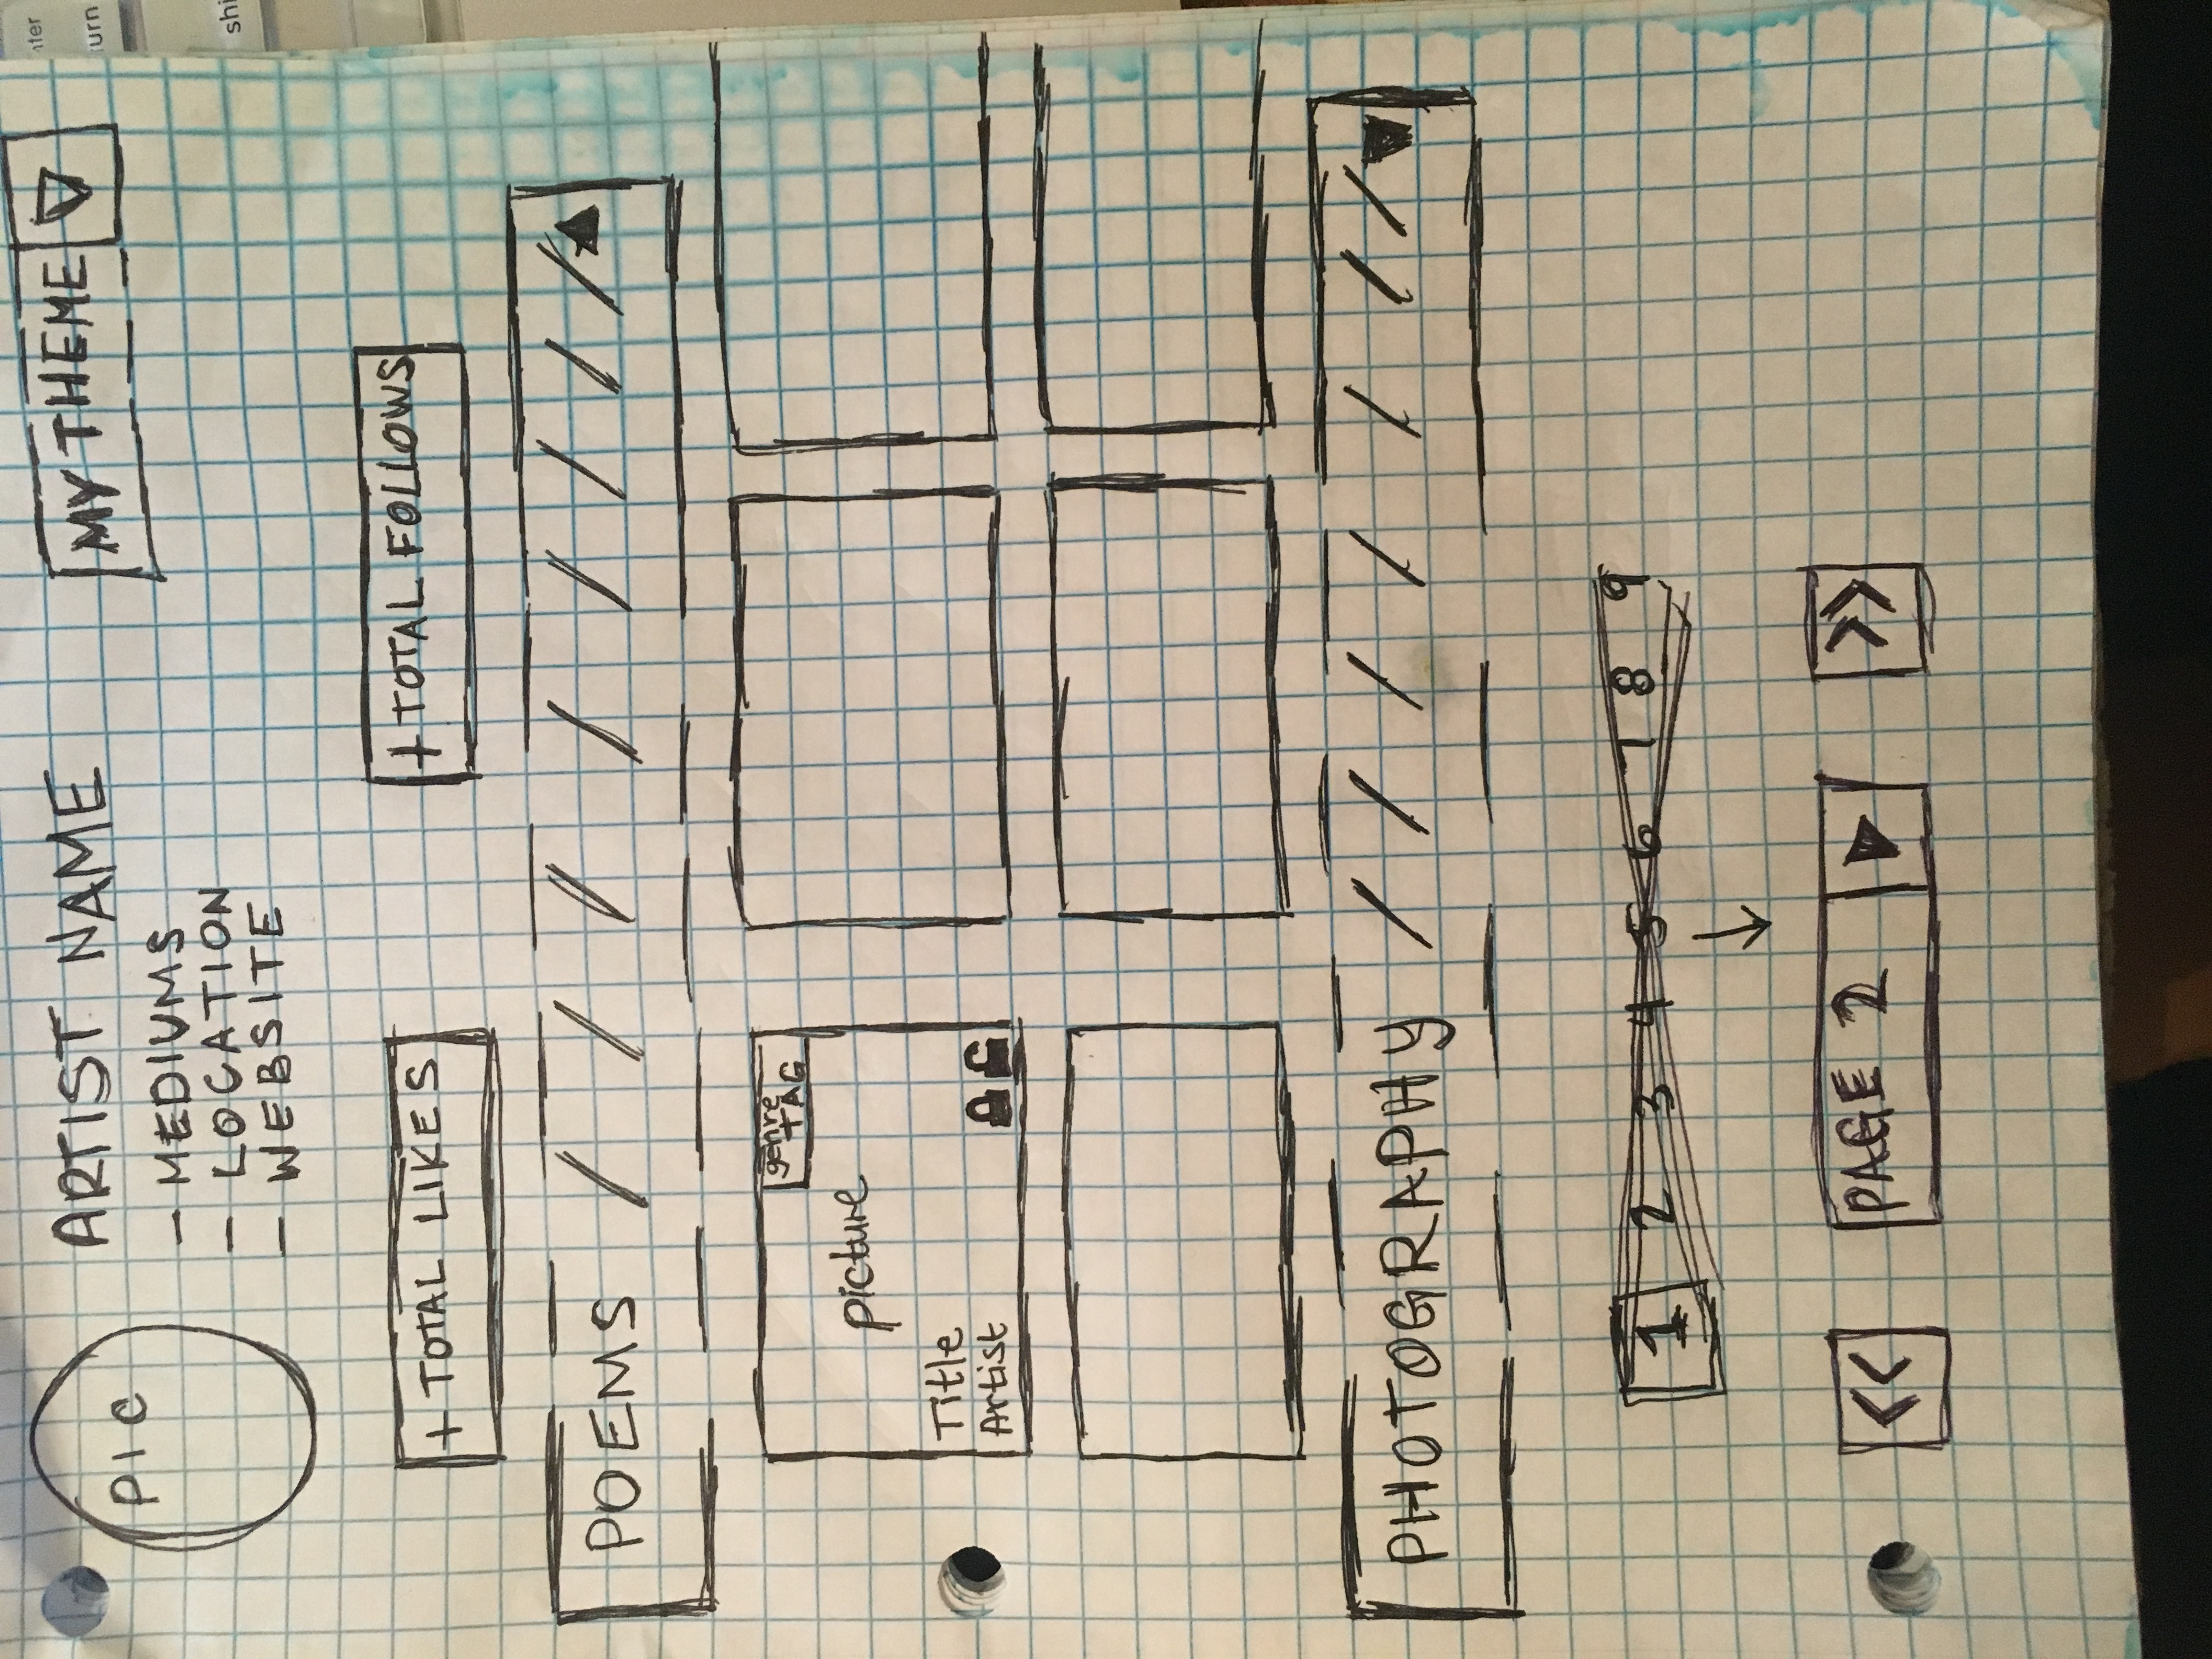 PIC
ARTIST NAME
MY THEME
- MEDIUMS
- LOCATION
- WEBSITE
+ TOTAL LIKES
+ TOTAL FOLLOWS
POEMS / / / / / / / /
genre
TAG
picture
Title
Artist
PHOTOGRAPHY / / / / / / /
1 2 3 4 5 6 7 8 9
<< PAGE 2 >>